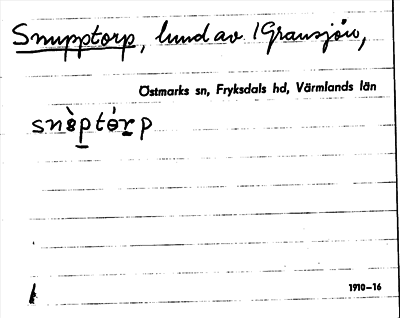 Snupptorp, lund av /Gransjön,
Östmarks sn, Fryksdals hd, Värmlands län
snèptórp
1910–16